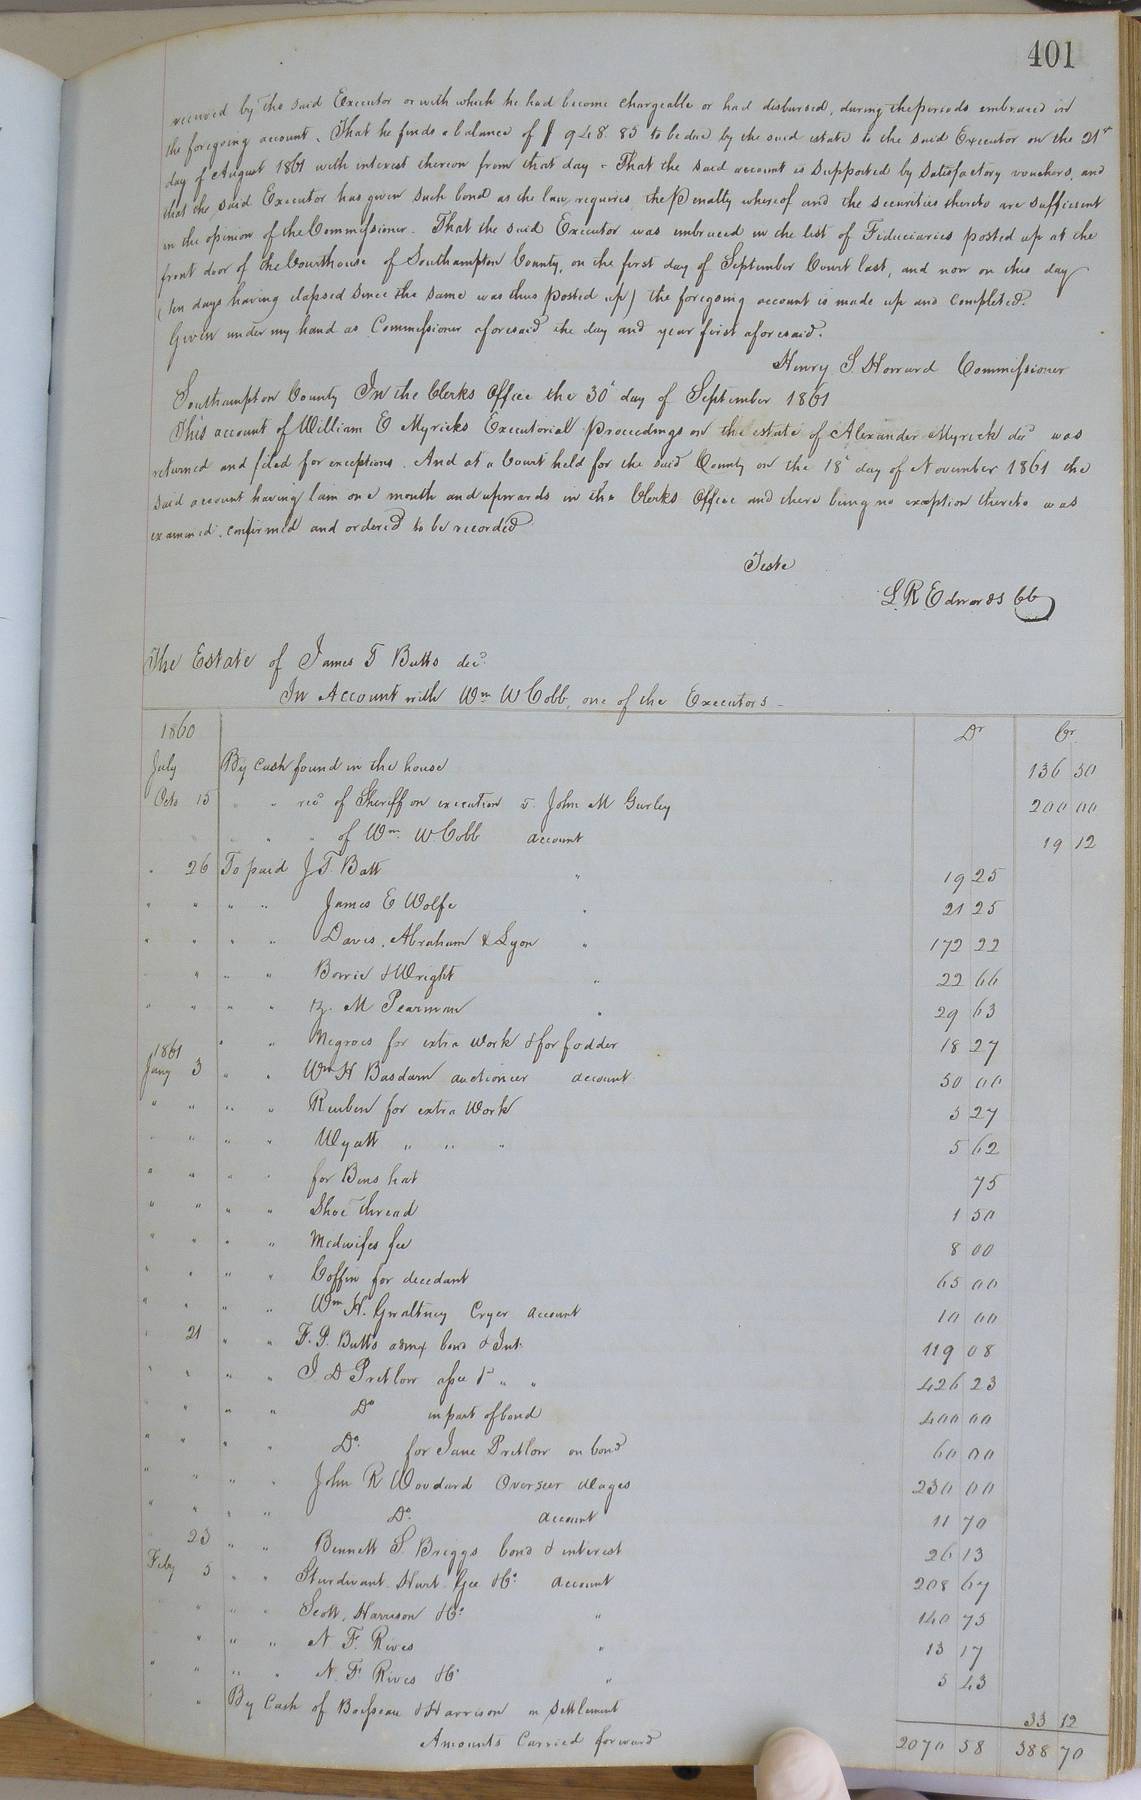 401
received by the said Executor or with which he had become chargeable or had disbursed, during the periods embraced in
the foregoing account. That he finds a balance of $ 948.85 to be due by the said estate to the said Executor on the 21st
day of August 1861 with interest thereon from that day - That the said account is supported by satisfactory vouchers, and
that the said Executor has given such bond as the law requires, the Penalty whereof and the securities thereto are sufficient
in the opinion of the Commissioner. That the said Executor was embraced in the list of Fiduciaries posted up at the
front door of the Courthouse of Southampton County, on the first day of September Court last, and now on this day
(ten days having elapsed since the same was thus posted up) the foregoing account is made up and completed.
Given under my hand as Commissioner aforesaid the day and year first aforesaid.
Henry S Howard Commissioner
Southampton County In the Clerks Office the 30th day of September 1861
This account of William E Myricks Executorial Proceedings on the estate of Alexander Myrick decd was
returned and filed for exceptions. And at a Court held for the said County on the 18th day of November 1861 the
said account having lain one month and upwards in the Clerks Office and there being no exception thereto was
examined, confirmed and ordered to be recorded
Teste
L. R Edwards CC
The Estate of James T Butts decd
In Account with Wm W Cobb, one of the Executors -
1860 Dr Cr
July By Cash found in the house 136 50
Octo 15 " " recd of Sheriff on execution v. John M Gurley 200 00
" " " of Wm W Cobb account 19 12
" 26 To paid J T. Batt " 19 25
" " " " James E Wolfe " 21 25
" " " " Davis, Abraham & Lyon " 172 22
" " " Borrie & Wright " 22 66
" " " " M Pearman " 29 63
" " Negroes for extra work & for fodder 18 27
1861
Jany 3 " " Wm H Basdam auctioneer account 50 00
" " " " Reuben for extra Work 5 27
" " " " Wyatt " " " 5 62
" " " " for Bens hat 75
" " " " Shoe thread 1 50
" " " " Midwifes fee 8 00
" " " " Coffin for decedant 65 00
" " " " Wm H. Gwaltney Cryer account 10 00
" 21 " " F. P. Butts admx bond & Int. 119 08
" " " " J D Pretlow assee " " 426 23
" " " " Do in part of bond 400 00
" " " " Do. for Jane Pretlow on bond 60 00
" " " " John R Woodard Overseer Wages 230 00
" " " " Do. account 11 70
23 " " Bennett S. Briggs bond & interest 26 13
Feby 5 " " Sturdivant, Hurt, Gee & Co. account 208 67
" " " Scott, Harrison & Co. " 140 75
" " " N F. Rives " 13 17
" " " " N. F. Rives & Co " 5 43
" By Cash of Boisseau & Harrison in Settlement 33 12
Amounts Carried forward 2070 58 388 70